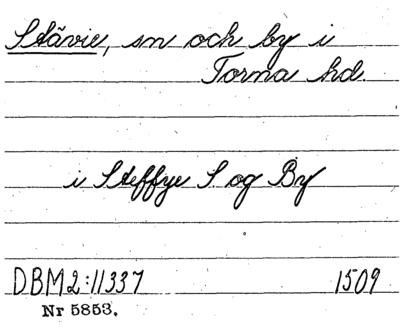 Stävie, sn och by i
Torna hd.
i Steffye S. og By
DBM2:11337 1509
Nr 5853.